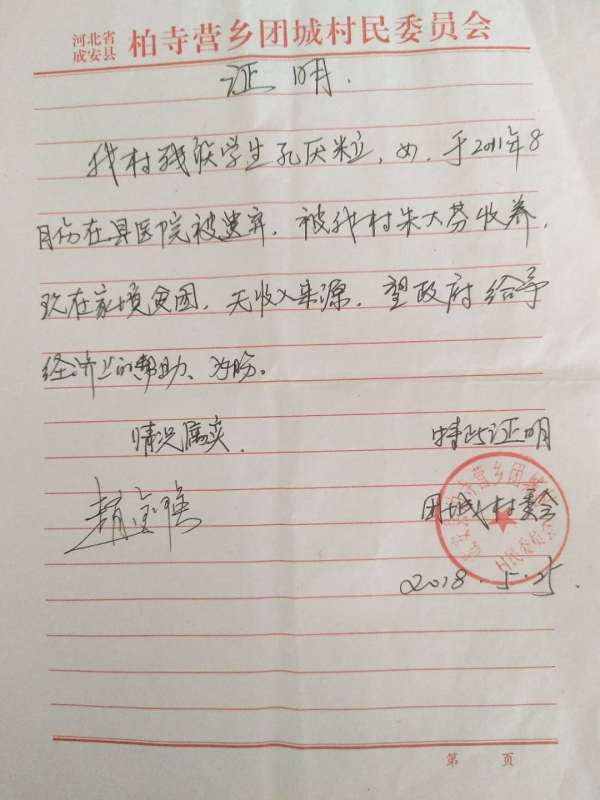 河北省
成安县
柏寺营乡团城村民委员会
证明.
我村残疾学生孔厌米立,女,于2011年8
月份在县医院被遗弃.被我村朱大芬收养,
现在家境贫困,无收入来源,望政府给予
经济上的帮助、为盼。
情况属实.
特此证明
团城村委会
2018.5.25.
村民委员会
第 页